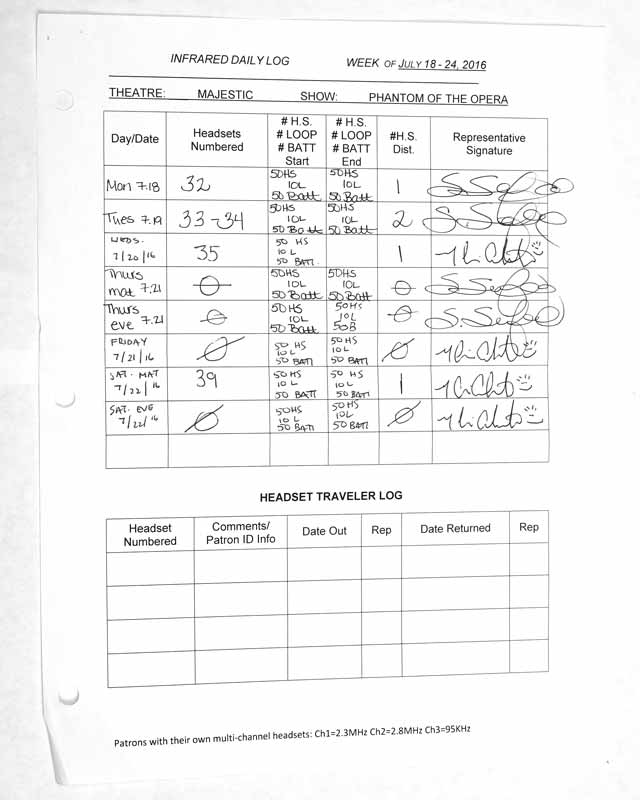 INFRARED DAILY LOG WEEK OF JULY 18 - 24, 2016
THEATRE: MAJESTIC SHOW: PHANTOM OF THE OPERA
Day/Date Headsets Numbered # H.S. # LOOP # BATT Start # H.S. # LOOP # BATT End #H.S. Dist. Representative Signature
Mon 7.18 32 50HS 10L 50 Batt 50HS 10L 50 Batt 1
Tues 7.19 33-34 50HS 10L 50 Batt 50HS 10L 50 Batt 2
WEDS. 7/20/16 35 50 HS 10 L 50 BATT. 1
Thurs mat 7.21 Ø 50HS 10L 50 Batt 50HS 10L 50 Batt Ø
Thurs eve 7.21 Ø 50HS 10L 50 Batt 50HS 10L 50B Ø
FRIDAY 7/21/16 Ø 50HS 10L 50 BATT 50HS 10L 50 BATT Ø
SAT. MAT 7/22/16 39 50 HS 10 L 50 BATT 50 HS 10 L 50 BATT 1
SAT. EVE 7/22/16 Ø 50HS 10 L 50 BATT 50HS 10L 50 BATT Ø
HEADSET TRAVELER LOG
Headset Numbered Comments/ Patron ID Info Date Out Rep Date Returned Rep
Patrons with their own multi-channel headsets: Ch1=2.3MHz Ch2=2.8MHz Ch3=95KHz